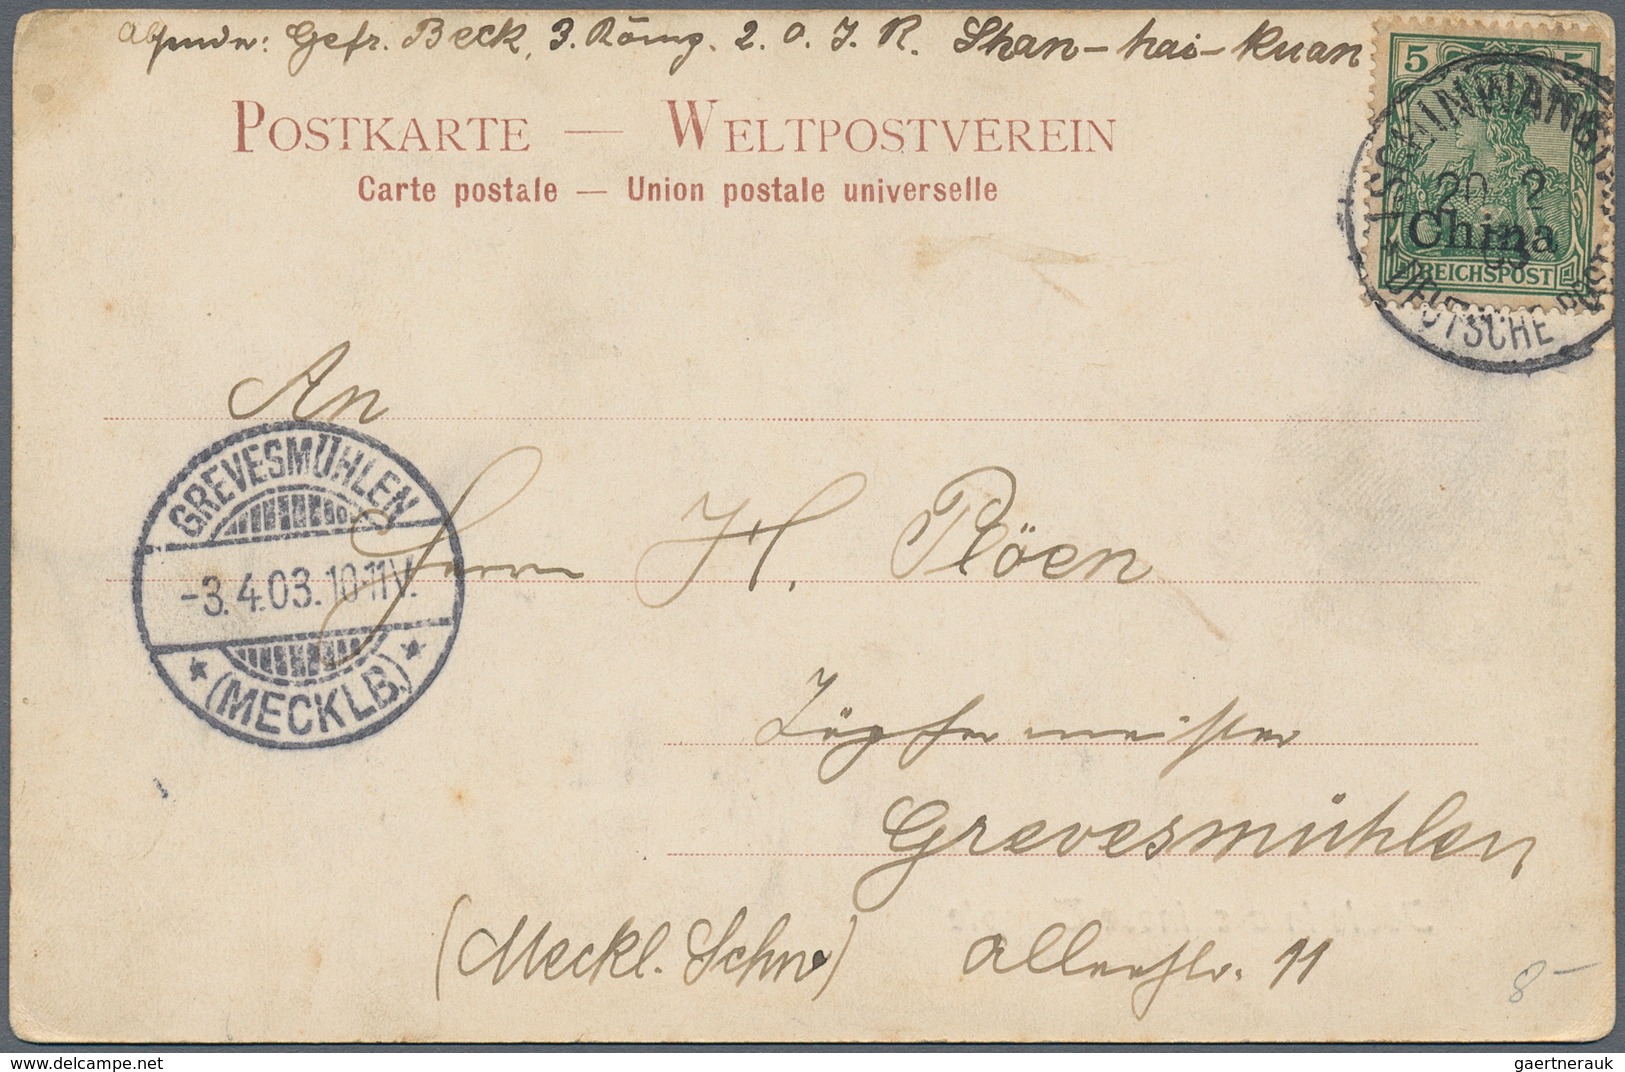 Absender: Gefr. Beck, 3. Komp. 2. O. I. R. Shan-hai-Kuan
POSTKARTE — WELTPOSTVEREIN
Carte postale — Union postale universelle
5 5
TSCHINWANGTAU
20 2
03
China
REICHSPOST
DEUTSCHE POST
An
GREVESMÜHLEN
-3.4.03.10-11V.
* (MECKLB.) *
Herrn H. Plöen
Töpfermeister
Grevesmühlen
(Meckl. Schw) 11
8-
www.delcampe.net
gaertnerauk